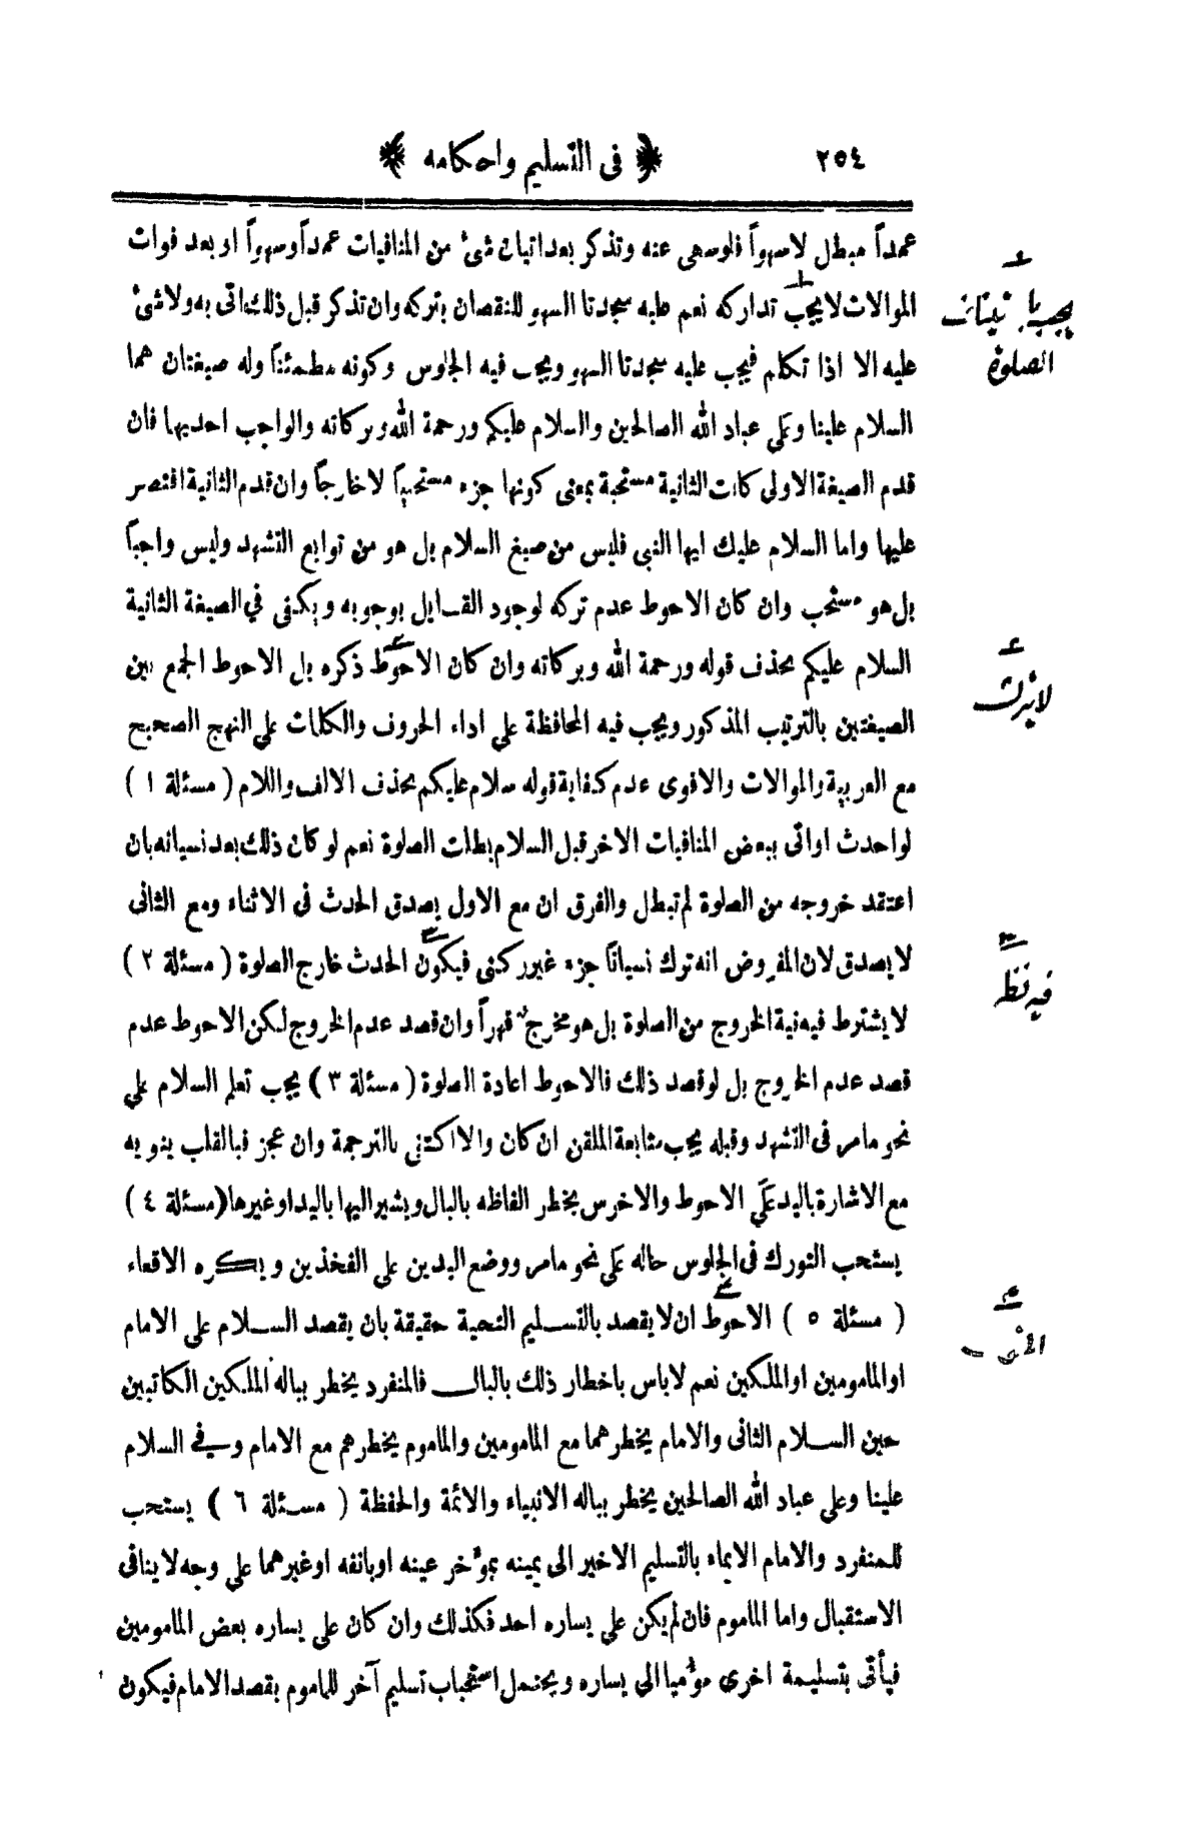 ٢٥٤
﴿ في التسليم واحكامه ﴾
عمداً مبطل لاسهواً فلوسهى عنه وتذكر بعد اتيان شئ من المنافيات عمداً وسهواً او بعد فوات
الموالات لايجب تداركه نعم عليه سجدتا السهو للنقصان بتركه وان تذكر قبل ذلك اتى به ولاشئ
عليه الا اذا تكلم فيجب عليه سجدتا السهو ويجب فيه الجلوس وكونه مطمئناً وله صيغتان هما
السلام علينا وعلى عباد الله الصالحين والسلام عليكم ورحمة الله وبركاته والواجب احديهما فان
قدم الصيغة الاولى كانت الثانية مستحبة بمعنى كونها جزء مستحباً لاخارجاً وان قدم الثانية اقتصر
عليها واما السلام عليك ايها النبى فليس من صيغ السلام بل هو من توابع التشهد وليس واجباً
بل هو مستحب وان كان الاحوط عدم تركه لوجود القايل بوجوبه ويكفى في الصيغة الثانية
السلام عليكم بحذف قوله ورحمة الله وبركاته وان كان الاحوط ذكره بل الاحوط الجمع بين
الصيغتين بالترتيب المذكور ويجب فيه المحافظة على اداء الحروف والكلمات على النهج الصحيح
مع العربية والموالات والاقوى عدم كفاية قوله سلام عليكم بحذف الالف واللام ( مسئلة ١ )
لو احدث او اتى ببعض المنافيات الاخر قبل السلام بطلت الصلوة نعم لو كان ذلك بعد نسيانه بان
اعتقد خروجه من الصلوة لم تبطل والفرق ان مع الاول يصدق الحدث فى الاثناء ومع الثانى
لايصدق لان المفروض انه ترك نسيانا جزء غير ركنى فيكون الحدث خارج الصلوة ( مسئلة ٢ )
لايشترط فيه نية الخروج من الصلوة بل هو مخرج قهراً وان قصد عدم الخروج لكن الاحوط عدم
قصد عدم الخروج بل لو قصد ذلك فالاحوط اعادة الصلوة ( مسئلة ٣ ) يجب تعلم السلام على
نحو مامر فى التشهد وقبله يجب متابعة الملقن ان كان والا اكتفى بالترجمة وان عجز فبالقلب ينويه
مع الاشارة باليد على الاحوط والاخرس يخطر الفاظه بالبال ويشير اليها باليد او غيرها ( مسئلة ٤ )
يستحب التورك فى الجلوس حاله على نحو مامر ووضع اليدين على الفخذين ويكره الاقعاء
( مسئلة ٥ ) الاحوط ان لايقصد بالتسليم التحية حقيقة بان يقصد السلام على الامام
او المامومين او الملكين نعم لاباس باخطار ذلك بالبال فالمنفرد يخطر بباله الملكين الكاتبين
حين السلام الثانى والامام يخطرهما مع المامومين والماموم يخطرهم مع الامام وفى السلام
علينا وعلى عباد الله الصالحين يخطر بباله الانبياء والائمة والحفظة ( مسئلة ٦ ) يستحب
للمنفرد والامام الايماء بالتسليم الاخير الى يمينه بمؤخر عينه او بانفه او غيرهما على وجه لاينافى
الاستقبال واما الماموم فان لم يكن على يساره احد فكذلك وان كان على يساره بعض المامومين
فيأتى بتسليمة اخرى مؤميا الى يساره ويحتمل استحباب تسليم آخر للماموم بقصد الامام فيكون
الصلوة
لايترك
فيه نظر